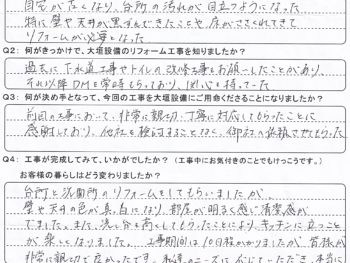 自宅が古くなり、台所の汚れが目立つようになった
特に壁や天井が黒ずんできたことや床がささくれてきて
リフォームが必要となった
Q2: 何がきっかけで、大垣設備のリフォーム工事を知りましたか?
過去に下水道工事やトイレの改修工事もお願いしたことがあり、
それ以降DMを常時もらっており、関心を持っていた
Q3: 何が決め手となって、今回の工事を大垣設備にご用命くださることになりましたか?
前回の工事において、非常に親切、丁寧に対応してもらったことに
感謝しており、他社を検討することなく、御社に依頼させてもらった
Q4: 工事が完成してみて、いかがでしたか?(工事中にお気付きのことでもけっこうです。)
お客様の暮らしはどう変わりましたか?
台所と洗面所のリフォームをしてもらいましたが、
壁や天井の色が真白になり、部屋が明るく感じ清潔感が
でました。また、流し台を高くしてもらったことにより、キッチンに立つことが
楽しくなりました。工事期間は10日程かかりましたが、皆様が
非常に親切で良かったです。私達のニーズに応じていただき、本当に